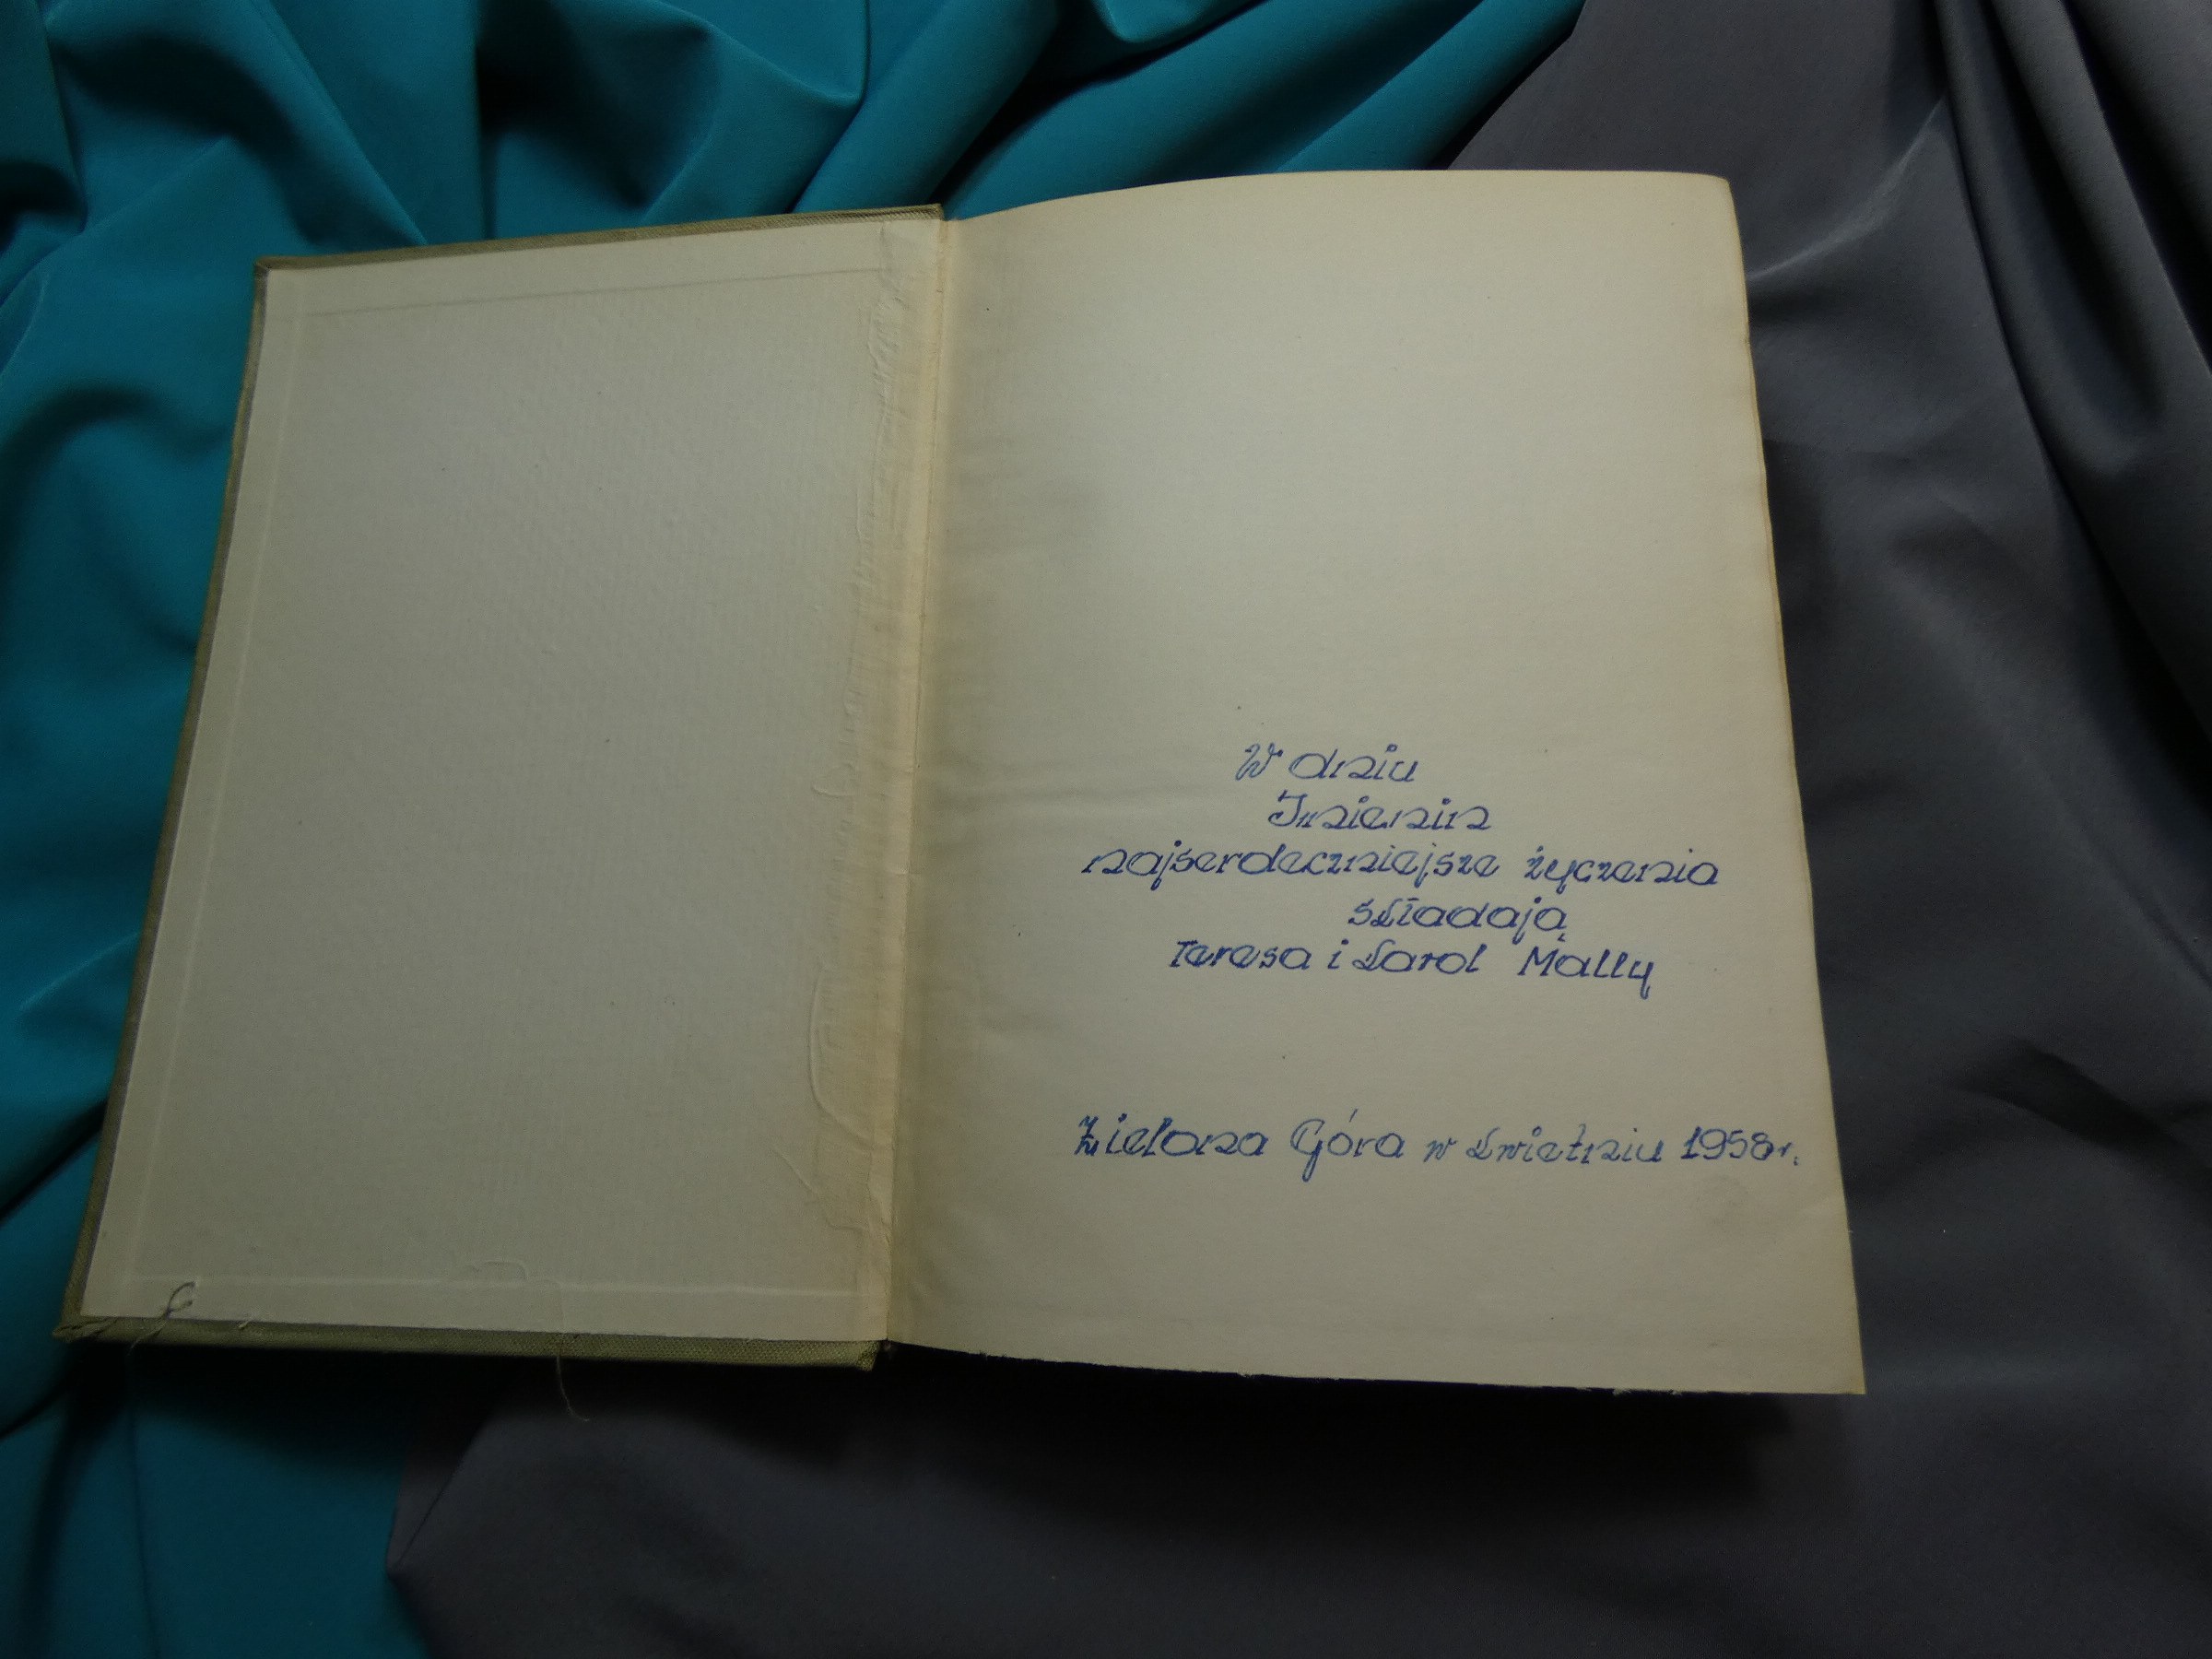 W dniu
Imienin
najserdeczniejsze życzenia
składają
Teresa i Karol Mally
Zielona Góra w kwietniu 1958r.